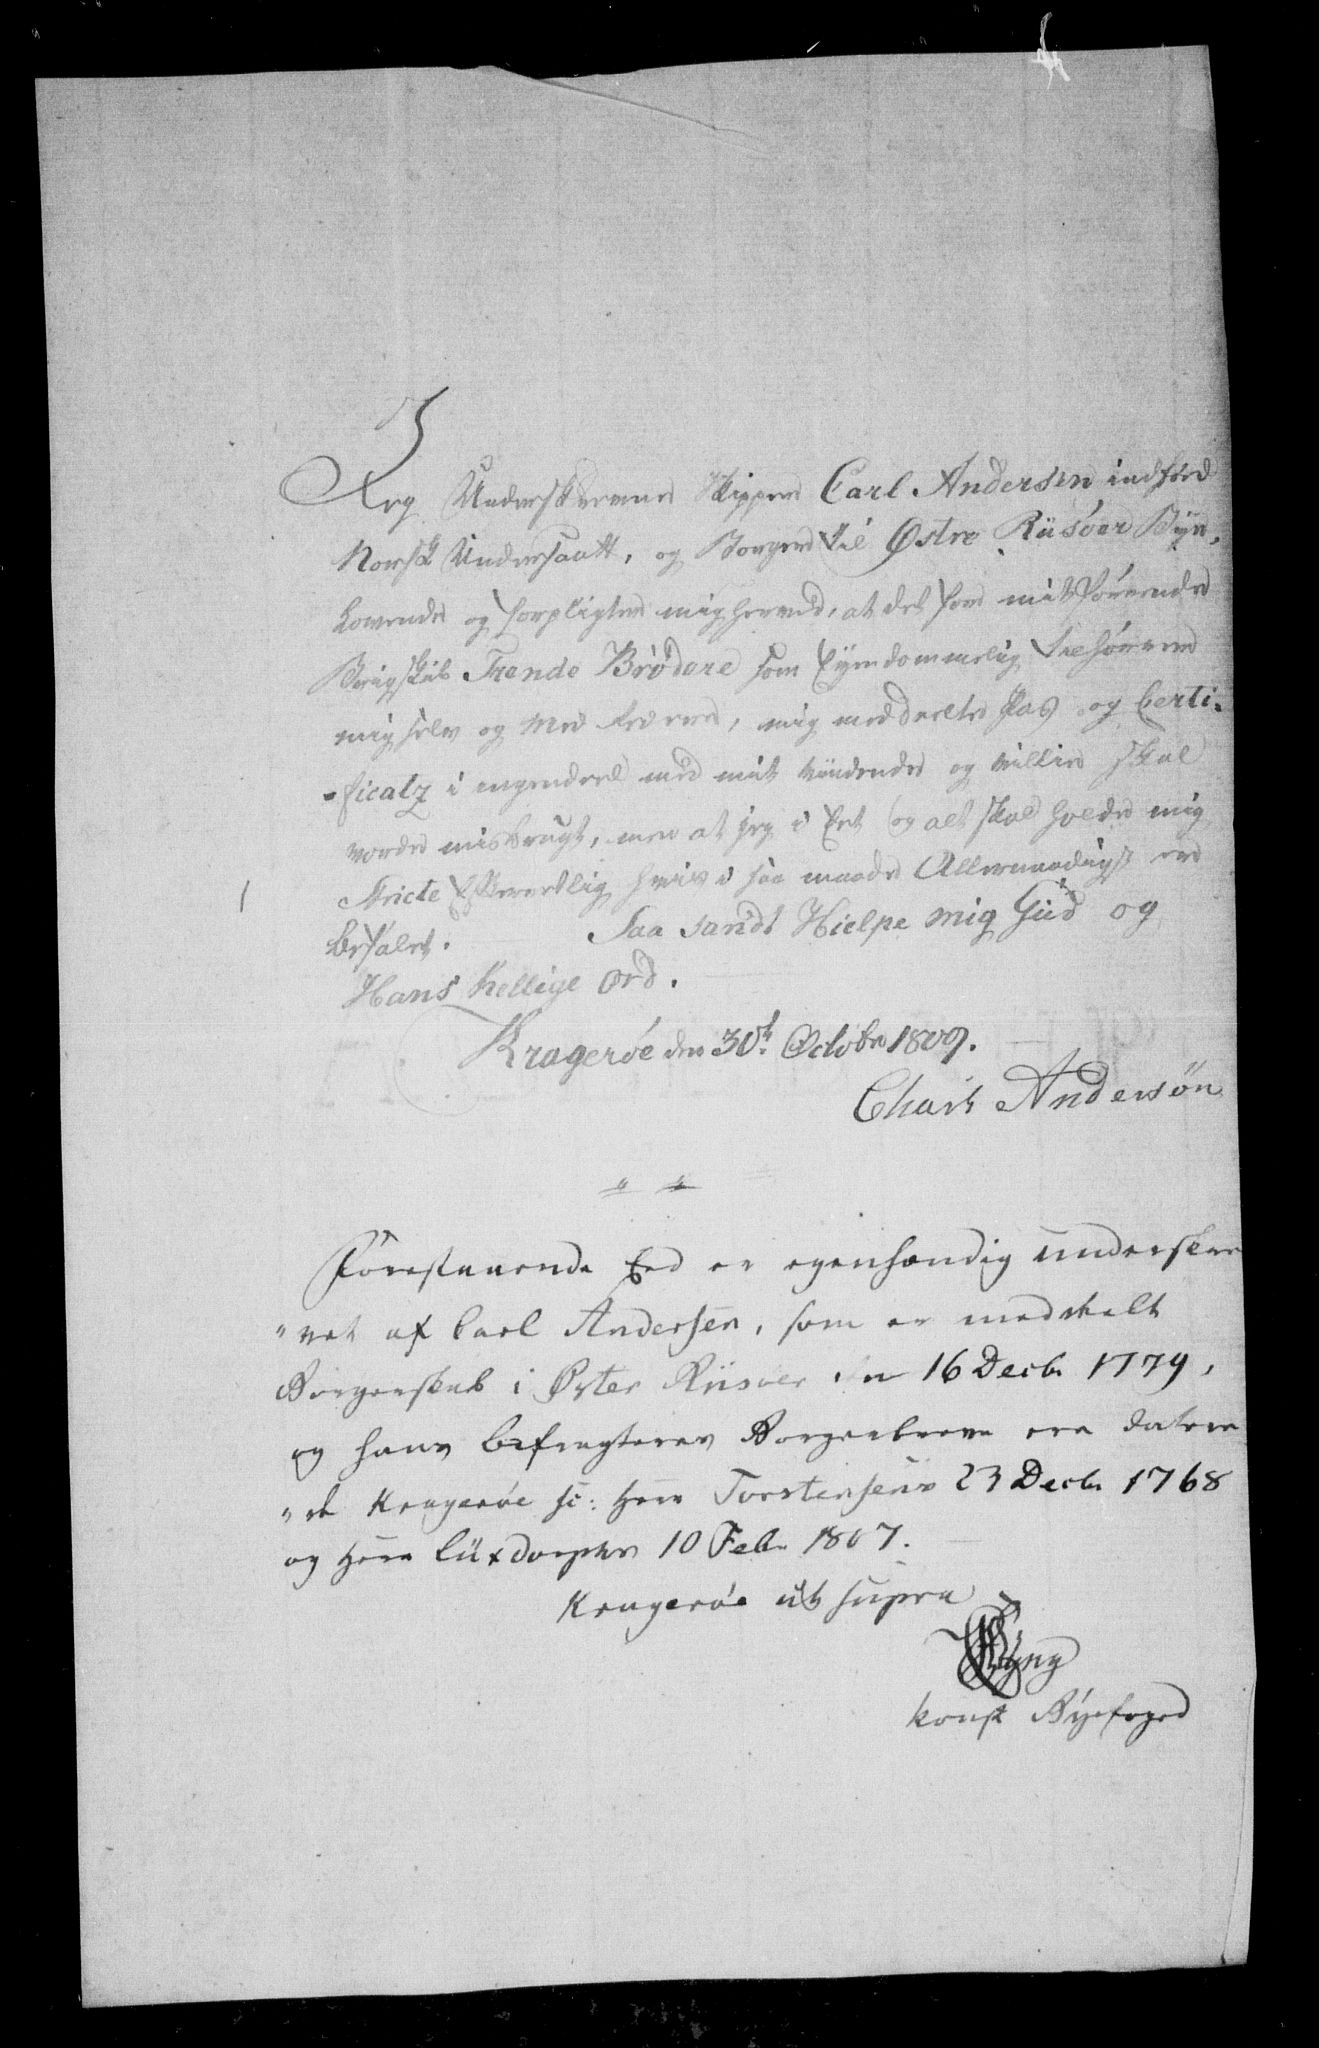 Jeg Underskrevne Skipper Carl Andersen indföd
Norsk Undersaatt, og Borger til Østre Riisöer Bye,
Lovende og forpligter mig herved, at det for mit förende
Brigskib Trende Brödere som Eyendommelig tilhörer
mig selv og Med Redere, mig meddeelte Pas og Certi-
-ficatz i ingendeel med mit vidende og villie skal
vorde misbrugt, men at jeg i Eet og alt skal holde mig
stricte Efterrettlig hvis i saa maade Allernaadigst er
befalet. Saa sandt Hielpe mig Gud og
Hans hellige Ord.
Krageröe den 30t. Octobr 1809.
Charls Andersøn
Forestaaende Eed er egenhændig underskre
"vet af Carl Andersen, som er meddeelt
Borgerskab i Øster Riisoer den 16 Decbr 1779,
og hans Befragteres Borgerbreve ere datere
"de Krageröe sc: Herr Torstensens 23 Decbr 1768
og Herr Lüxdorphs 10 Febr 1807.
Krageröe ut supra
konst Byefoged